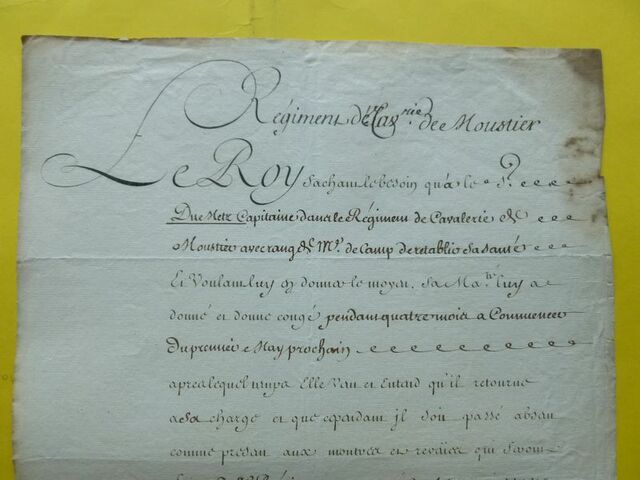 Régiment de Cav.rie de Moustier
Le Roy Sachant le besoin qu'a le S.r
Du Metz Capitaine dans le Régiment de Cavalerie de
Moustier avec rang de M.e de Camp de retablir Sa Santé
Et Voulant luy en donner le moyen, Sa Ma.té luy a
donné et donne congé pendant quatre mois a Commencer
Du premier May prochain
apres lequel temps Elle Veut et Entend qu'il retourne
a Sa charge et que cependant il Soit passé absent
comme present aux montres et reveües qui Seront